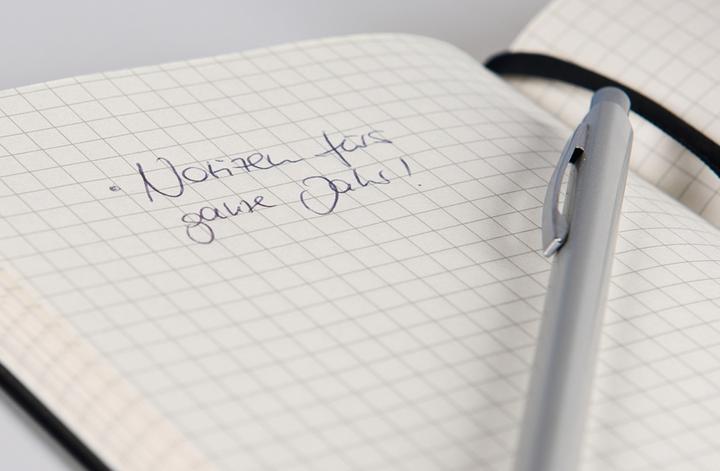 · Notizen fürs
ganze Jahr!